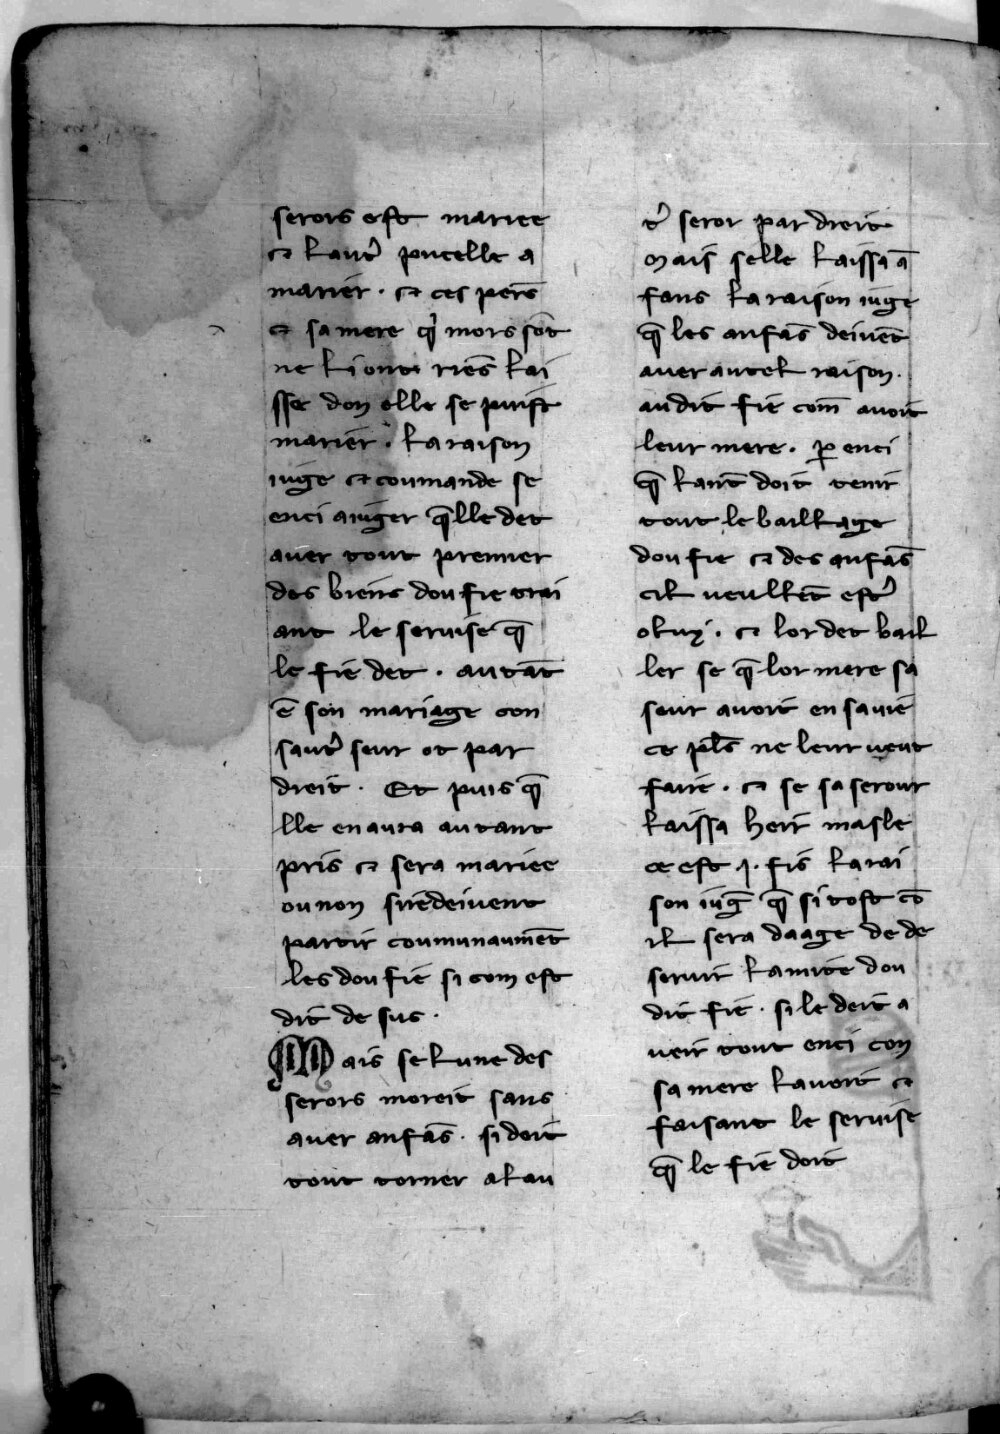 serors est mariee
⁊ lautᷣ pucelle a
marier · ⁊ ces pers̄
⁊ sa mere qͥ mors sōt
ne li ont riēs lai
sse don elle se puist
marier · la raison
iuge ⁊ coumande se
enci aiuger q̄lle det
auer tout premier
des biens dou fie trai
ant le seruise q̄
le fie det · autāt
ē son mariage con
sautᷣ seur ot par
dreit · Et puis q̄
lle en aura autant
pris ⁊ sera mariee
ou non si rēdeiuent
partir coumunaumēt
les dou fie si com est
dit de sus ·
Mais se lune des
serors moreit sans
auer anfās · si doit
tout torner a lau
tᷣ seror par dreit
Mais selle laissa ā
fans la raison iuge
q̄ les anfās deiuēt
auer autel raison ·
au dit fie com̄ auoit
leur mere · ꝑ enci
q̄ lant̄ doit tenir
tout le baillage
dou fie ⁊ des anfās
cil veullēt estᷣ
o luy · ⁊ lor det bail
ler se q̄ lor mere sa
seur auoit en sa uie
ce pls̄ ne leur veut
faire · ⁊ se sa serour
laissa heir masle
ce est ·j· fis la rai
son iuḡ q̄ si tost cō
il sera daage de de
seruir lamite dou
dit fie · si le deit a
ueir tout enci con
sa mere lauoit ⁊
faisant le seruise
q̄ le fie doit